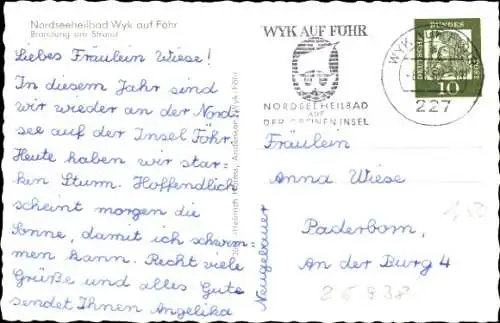 Nordseeheilbad Wyk auf Föhr
Brandung am Strand
Liebes Fräulein Wiese!
In diesem Jahr sind
wir wieder an der Nord-
see auf der Insel Föhr.
Heute haben wir star-
ken Sturm. Hoffendlich
scheint morgen die
Sonne, damit ich schwim-
men kann. Recht viele
Grüße und alles Gute
sendet Ihnen Angelika
Neugebauer
WYK AUF FÖHR
NORDSEEHEILBAD
AUF
DER GRÜNEN INSEL
WYK AUF
227
DEUTSCHE BUNDESPOST
10
Fräulein
Anna Wiese
Paderborn,
An der Burg 4
26938